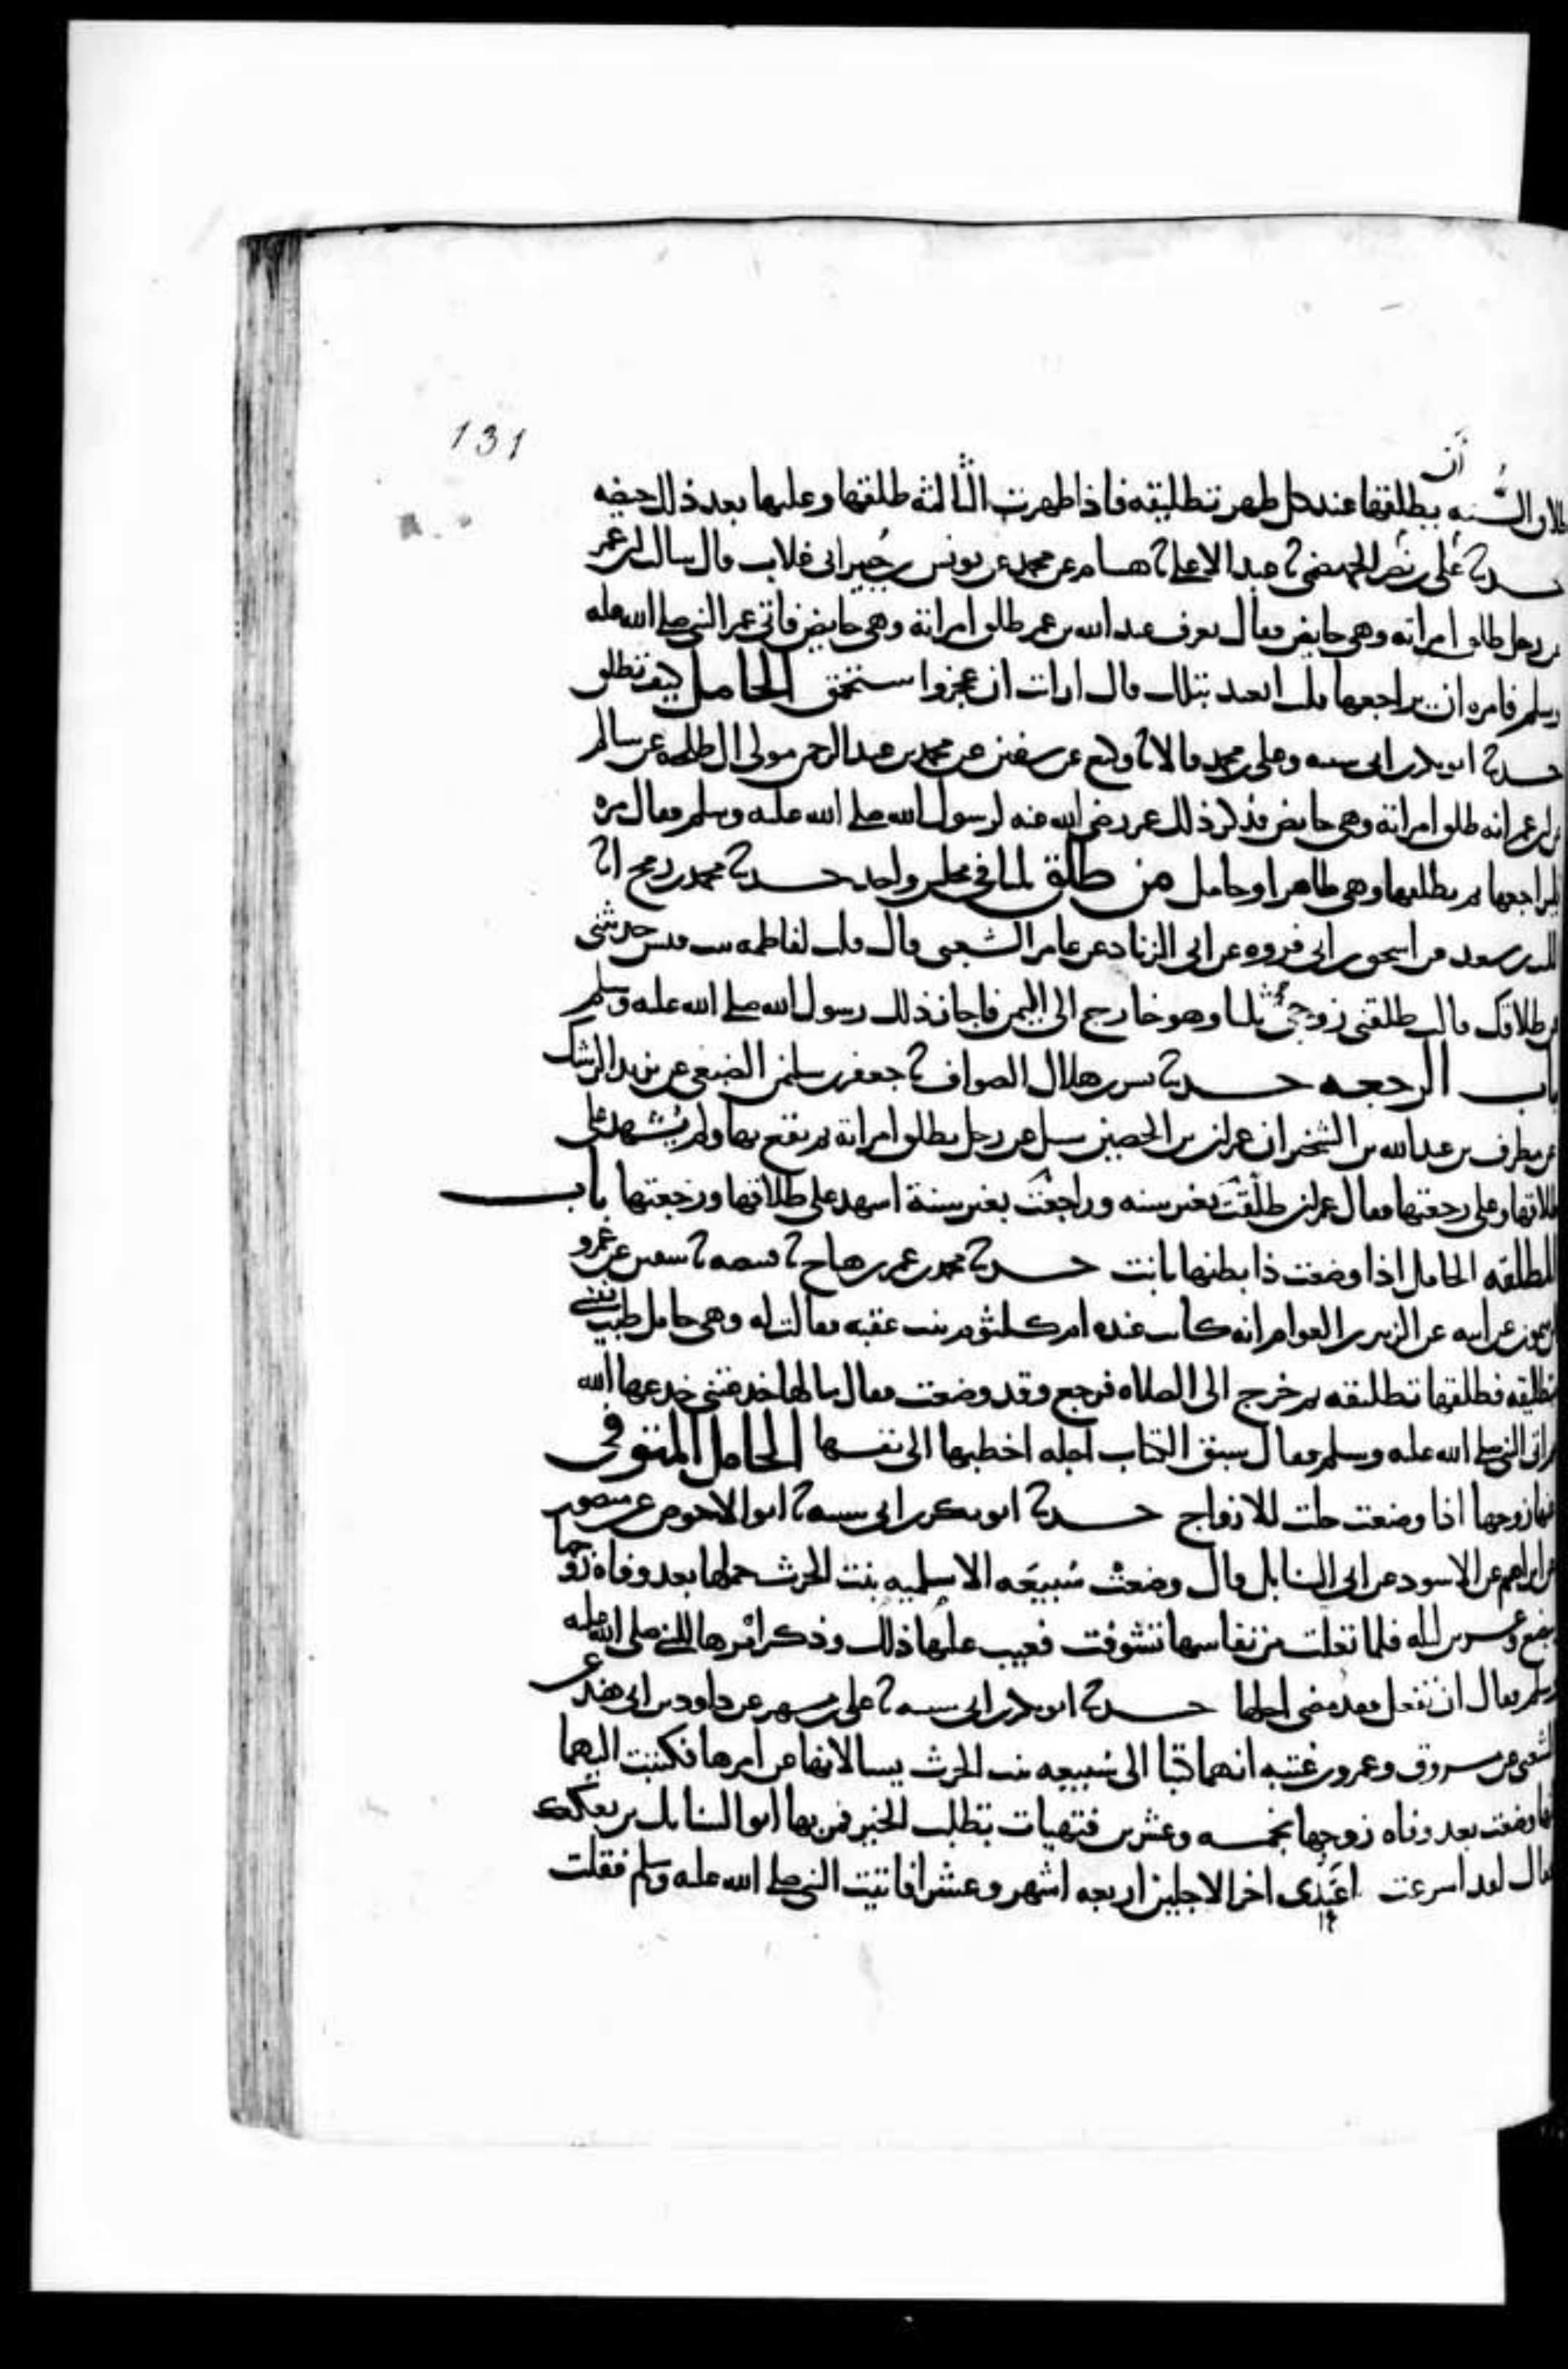 131
أن
طلاق السنه يطلقها عند كل طهر تطليقه فاذا طهرت الثالثه طلقها وعليها بعد ذلك حيضه
حدثنا على بن نصر الجهضمى ثنا عبد الاعلى ثنا هسام عن محمد عن يونس بن جبير ابى غلاب قال سالت ابن عمر
عن رجل طلق امراته وهى حايض فقال تعرف عبد الله بن عمر طلق امراته وهى حايض فاتى عمر النبى صلى الله عليه
وسلم فامره ان يراجعها قلت ايعتد بتلك قال ارايت ان عجز واستحمق الحامل كيف تطلق
حدثنا ابو بكر بن ابى شيبه وعلى بن محمد قالا ثنا وكيع عن سفين عن محمد بن عبد الرحمن مولى ال طلحه عن سالم
عن ابن عمر انه طلق امراته وهى حايض فذكر ذلك عمر رضى الله عنه لرسول الله صلى الله عليه وسلم فقال مره
فليراجعها ثم يطلقها وهى طاهر او حامل من طلق ثلثا فى مجلس واحد حدثنا محمد بن رمح انا
الليث بن سعد عن اسحق بن ابى فروه عن ابى الزناد عن عامر الشعبى قال قلت لفاطمه بنت قيس حدثينى
عن طلاقك قالت طلقنى زوجى ثلثا وهو خارج الى اليمن فاجاز ذلك رسول الله صلى الله عليه وسلم
باب الرجعه حدثنا بشر بن هلال الصواف ثنا جعفر بن سليمن الضبعى عن يزيد الرشك
عن مطرف بن عبد الله بن الشخير ان عمران بن الحصين سيل عن رجل يطلق امراته ثم يقع بها ولم يشهد على
طلاقها وعلى رجعتها فقال عمران طلقت بغير سنه وراجعت بغير سنة اشهد على طلاقها ورجعتها باب
المطلقه الحامل اذا وضعت ذا بطنها بانت حدثنا محمد بن عمر بن هياج ثنا قبيصه ثنا سفين عن عمرو
بن ميمون عن ابيه عن الزبير بن العوام انه كانت عنده ام كلثوم بنت عقبه فقالت له وهى حامل طيب نفسى
بتطليقه فطلقها تطليقه ثم خرج الى الصلاه فرجع وقد وضعت فقال مالها خدعتنى خدعها الله
ثم اتى النبى صلى الله عليه وسلم فقال سبق الكتاب اجله اخطبها الى نفسها الحامل المتوفى
عنها زوجها اذا وضعت حلت للازواج حدثنا ابو بكر بن ابى شيبه ثنا ابو الاحوص عن منصور
عن ابراهيم عن الاسود عن ابى السنابل قال وضعت سبيعه الاسلميه بنت الحرث حملها بعد وفاه زوجها
ببضع وعشرين ليله فلما تعلت من نفاسها تشوفت فعيب عليها ذلك وذكر امرها للنبى صلى الله عليه
وسلم فقال ان تفعل فقد مضى اجلها حدثنا ابو بكر بن ابى شيبه ثنا على بن مسهر عن داود بن ابى هند عن
الشعبى عن مسروق وعمرو بن عتبه انهما كتبا الى سبيعه بنت الحرث يسالانها عن امرها فكتبت اليهما
انها وضعت بعد وفاه زوجها بخمسه وعشرين فتهيات تطلب الخير فمر بها ابو السنابل بن بعكك
فقال لقد اسرعت اعتدى اخر الاجلين اربعه اشهر وعشرا فاتيت النبى صلى الله عليه وسلم فقلت